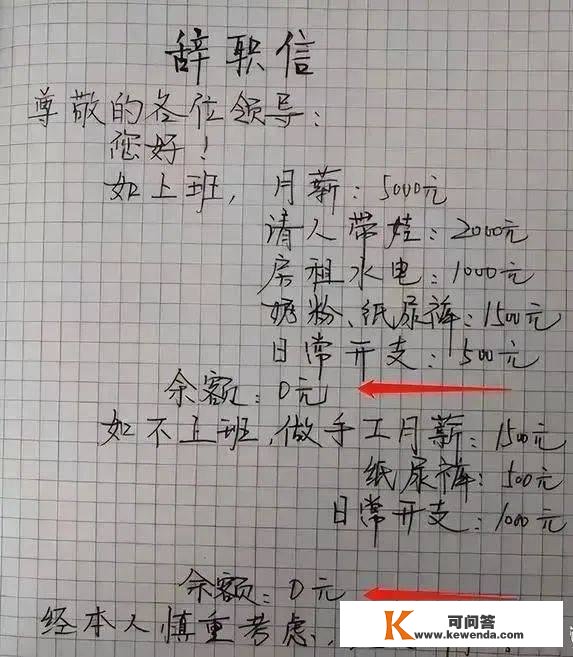 辞职信
尊敬的各位领导:
您好!
如上班, 月薪: 5000元
请人带娃: 2000元
房租水电: 1000元
奶粉、纸尿裤: 1500元
日常开支: 500元
余额: 0元
如不上班, 做手工月薪: 1500元
纸尿裤: 500元
日常开支: 1000元
余额: 0元
经本人慎重考虑,
K 可问答
www.kewenda.com